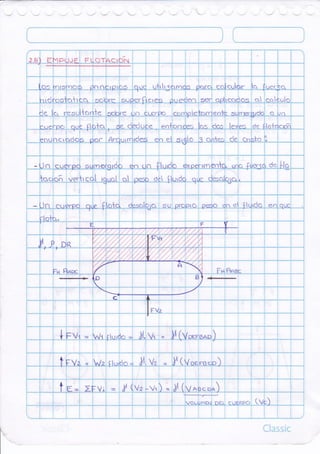 2.8) EMPUJE Y FLOTACIÓN
Los mismos principios que utilizamos para calcular la fuerza
hidrostática sobre superficies pueden ser aplicados al cálculo
de la resultante sobre un cuerpo completamente sumergido o un
cuerpo que flota, se deduce entonces las dos leyes de flotación
enunciadas por Arquímedes en el siglo 3 antes de Cristo:
- Un cuerpo sumergido en un fluido experimenta una fuerza de flo
tación vertical igual al peso del fluido que desaloja.
- Un cuerpo que flota desaloja su propio peso en el fluido en que
flota.
E F
FV1
A
D B
C
FV2
↓ FV1 = W1 fluido = V1 =
↑ FV2 = W2 fluido = V2 =
↑ E = ΣFV = (V2 - V1) = (VABCDA)
VOLUMEN DEL CUERPO (Vc)
Classic